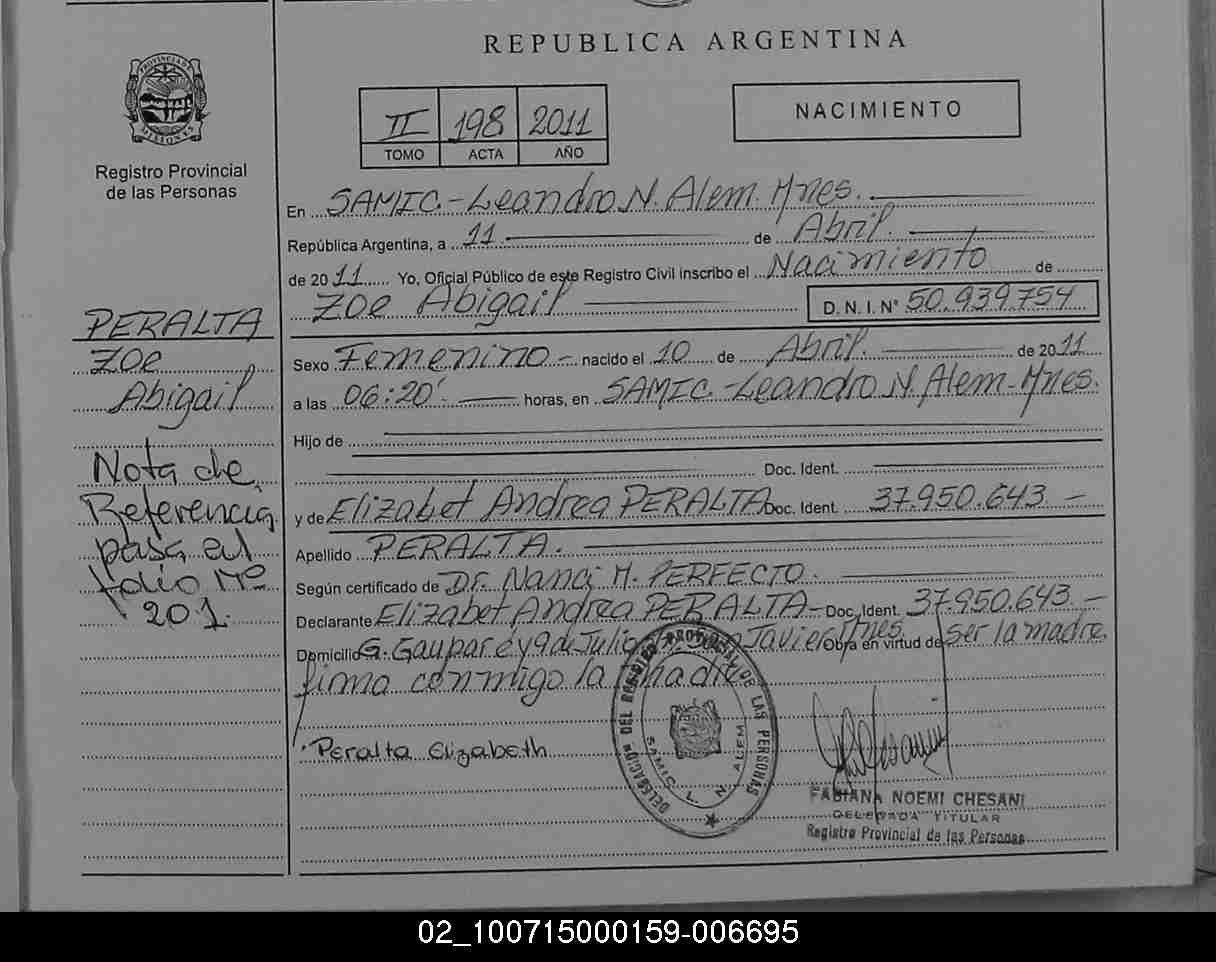 REPUBLICA ARGENTINA
PROVINCIA DE MISIONES
Registro Provincial
de las Personas
II 198 2011
TOMO ACTA AÑO
NACIMIENTO
En SAMIC.-Leandro N. Alem. Mnes.
República Argentina, a 11 de Abril.
de 2011 Yo, Oficial Público de este Registro Civil inscribo el Nacimiento de
Zoe Abigail D. N. I. N° 50.939.754
PERALTA
Zoe
Abigail
Nota de
Referencia
pasa al
folio Nº
201.
Sexo Femenino - nacido el 10 de Abril. de 2011
a las 06:20' horas, en SAMIC.-Leandro N. Alem-Mnes.
Hijo de
Doc. Ident.
y de Elizabet Andrea PERALTA Doc. Ident. 37.950.643 -
Apellido PERALTA.
Según certificado de Dr. Nanci M. PERFECTO.
Declarante Elizabet Andrea PERALTA- Doc. Ident. 37.950.643.-
Domicilio G. y 9 de Julio Javier Mnes. Obra en virtud de ser la madre,
firma conmigo la madre
Peralta Elizabeth
DELEGACION DEL REGISTRO PROVINCIAL DE LAS PERSONAS
SAMIC L. N. ALEM
FABIANA NOEMI CHESANI
DELEGADA TITULAR
Registro Provincial de las Personas
02_100715000159-006695